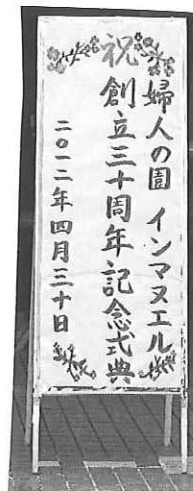 婦人の園 インマヌエル
祝 創立三十周年記念式典
二〇一二年四月三十日